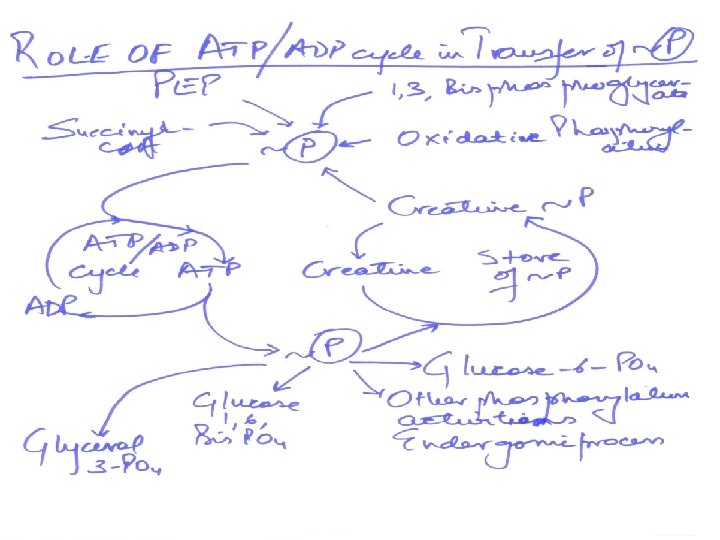 ROLE OF ATP/ADP cycle in Transfer of ~P
PEP
1,3, Bisphosphoglycer-
ate
Succinyl-
CoA
~P
Oxidative Phosphoryl-
ation
Creatine ~P
ATP/ADP
cycle
ATP
Creatine
Store
of ~P
ADP
~P
Glucose-6-PO4
Glucose
1,6,
Bis PO4
Other phosphorylation
Endergonic process
Glycerol
3-PO4